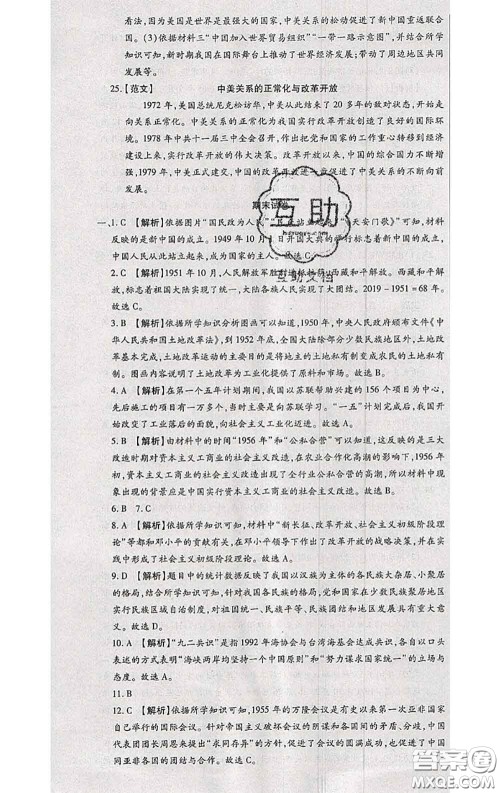 看法,因为美国是世界是最强大的国家,中美关系的松动促进了新中国重返联合
国。(3)依据材料三“中国加入世界贸易组织”“一带一路示意图”,并结合所
学知识可知,新时期我国在国际舞台上推动了世界经济发展;带动了周边地区共同
发展等。
25.【范文】 中美关系的正常化与改革开放
1972年,美国总统尼克松访华,中美从此结束了20多年的敌对状态,开始走
向关系正常化。中美关系的正常化为我国实行改革开放创造了良好的国际环境。
1978年中共十一届三中全会召开,作出把党和国家的工作重心转移到经济
建设上来,实行改革开放的伟大决策。改革开放以来,中国的综合国力不断增
强,1979年,中美正式建交,中国的改革开放进一步促进了中美关系的不断向前
发展。
期末试卷
互助
互助文档
一、1. C 【解析】依据图片“国民政为人民”“民在站立起来”“天安门歌”可知,材料
反映的是新中国的成立。1949年10月1日开国大典的举行标志着新中国的成立,
中国人民从此站立起来,成为国家的主人。故选C。
2. C 【解析】1951年10月,人民解放军胜利进驻拉萨,西藏和平解放。西藏和平解
放,标志着祖国大陆实现了统一,大陆各族人民实现了大团结。2019-1951=68年。
故选C。
3. B 【解析】依据所学知识分析图画可以知道,1950年,中央人民政府颁布文件《中
华人民共和国土地改革法》,到1952年底,全国大陆除部分少数民族地区外,土地改
革基本完成,土地改革运动的主要目的是将地主土地私有制变成农民的土地私有
制。图画说明了土地改革为工业化提供了原料和市场。故选B。
4. A 【解析】在第一个五年计划期间,我国以苏联帮助兴建的156个项目为中心,
先后施工的项目有一万多个,所以这一时期主要是向苏联学习。“一五”计划完成后,我国开
始改变了工业落后的面貌,向社会主义工业化迈进。故选A。
5. B 【解析】由材料中的时间“1956年”和“公私合营”可以知道,这反映的是三大
改造时期对资本主义工商业的社会主义改造,在农业合作化高潮的影响下,1956年
初,资本主义工商业的社会主义改造出了全行业公私合营的高潮,所以材料中现
象出现的背景应是中国实行资本主义工商业的社会主义改造。故选B。
6. B 7. C
8. A 【解析】依据所学知识可知,材料中“新长征、改革开放、社会主义初级阶段理
论”等都和邓小平的贡献有关,在邓小平领导下作出了改革开放的伟大决策,并在实
践中形成了社会主义初级阶段理论。故选A。
9. D 【解析】题目中的统计数据反映了我国以汉族为主体的各民族大杂居、小聚居
的格局,结合所学知识可知,针对我国各民族的格局,我国在少数民族聚居地区实行
民族区域自治制度,对实现祖国统一、民族平等、民族团结和各民族共同发展具有重
大意义。故选D。
10. A 【解析】“九二共识”是指1992年海协与台湾海基会达成共识,各自以口头
表述的方式表明“海峡两岸均坚持一个中国原则”和“努力谋求国家统一”的立场与
态度。故选A。
11. B
12. C 【解析】依据所学知识可知,1955年的万隆会议是有史以来第一次亚非国家
自己举行的国际会议。针对帝国主义破坏会议的阴谋和各国间的矛盾、分歧,中国
代表团团长周恩来提出“求同存异”的方针,促进了会议的圆满成功,成功促进了中国
同亚非各国的团结与合作。故选C。
答案圈
MXQE.COM